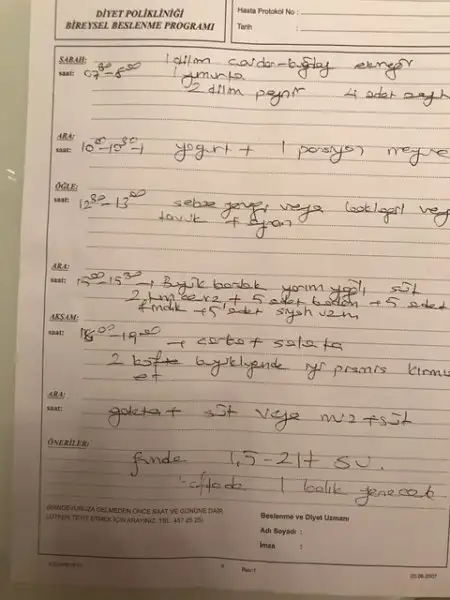 DİYET POLİKLİNİĞİ
BİREYSEL BESLENME PROGRAMI
Hasta Protokol No :
Tarih :
SABAH:
1 dilim çavdar-buğday ekmeği
saat:
1 yumurta
2 dilim peynir 4 adet
ARA:
saat:
yoğurt + 1 porsiyon meyve
ÖĞLE:
saat: 12 30-13 00
sebze yemeği veya baklagil
tavuk + ayran
ARA:
saat:
Büyük bardak yarım yağlı süt
2 tam ceviz + 5 adet badem + 5 adet
fındık + 5 adet siyah üzüm
AKŞAM:
saat:
çorba + salata
2 köfte büyüklüğünde iyi pişmiş
et
ARA:
saat:
galeta + süt veya muz + süt
ÖNERİLER:
günde 1,5-2 lt su.
haftada 1 balık yenecek
RANDEVUNUZA GELMEDEN ÖNCE SAAT VE GÜNÜNE DAİR
LÜTFEN TEYİT ETMEK İÇİN ARAYINIZ. TEL:
Beslenme ve Diyet Uzmanı
Adı Soyadı :
İmza :
Rev:1